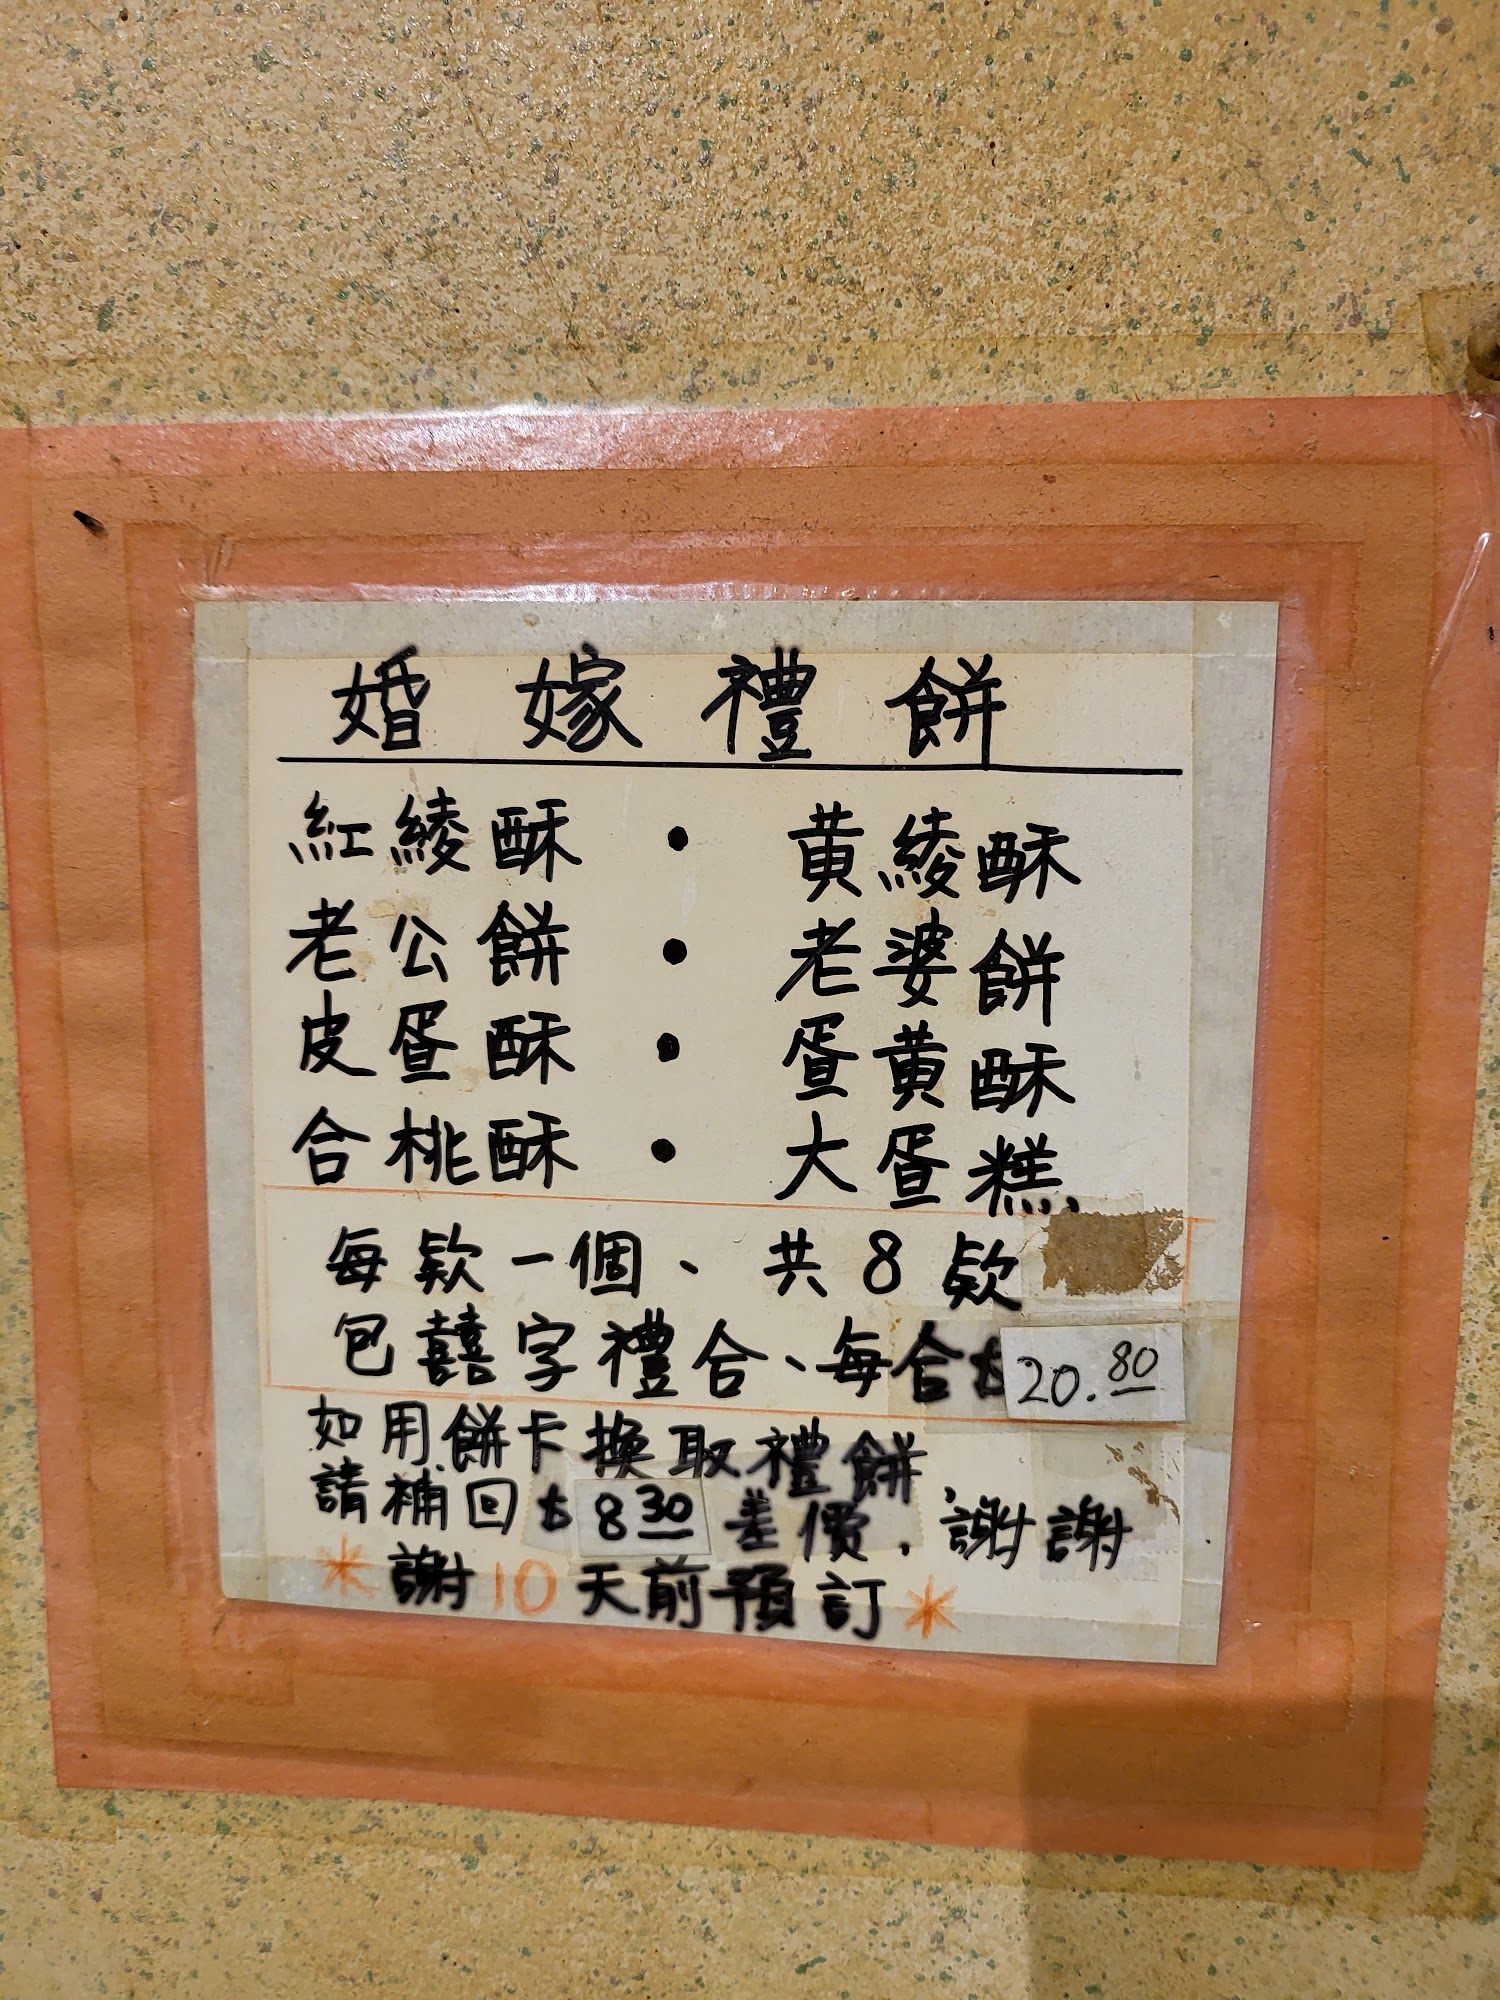 婚嫁禮餅
紅綾酥 • 黃綾酥
老公餅 • 老婆餅
皮蛋酥 • 蛋黃酥
合桃酥 • 大蛋糕
每款一個、共8款
包囍字禮合、每合$20.80
如用餅卡換取禮餅,
請補回$8.30差價,謝謝
*謝10天前預訂*